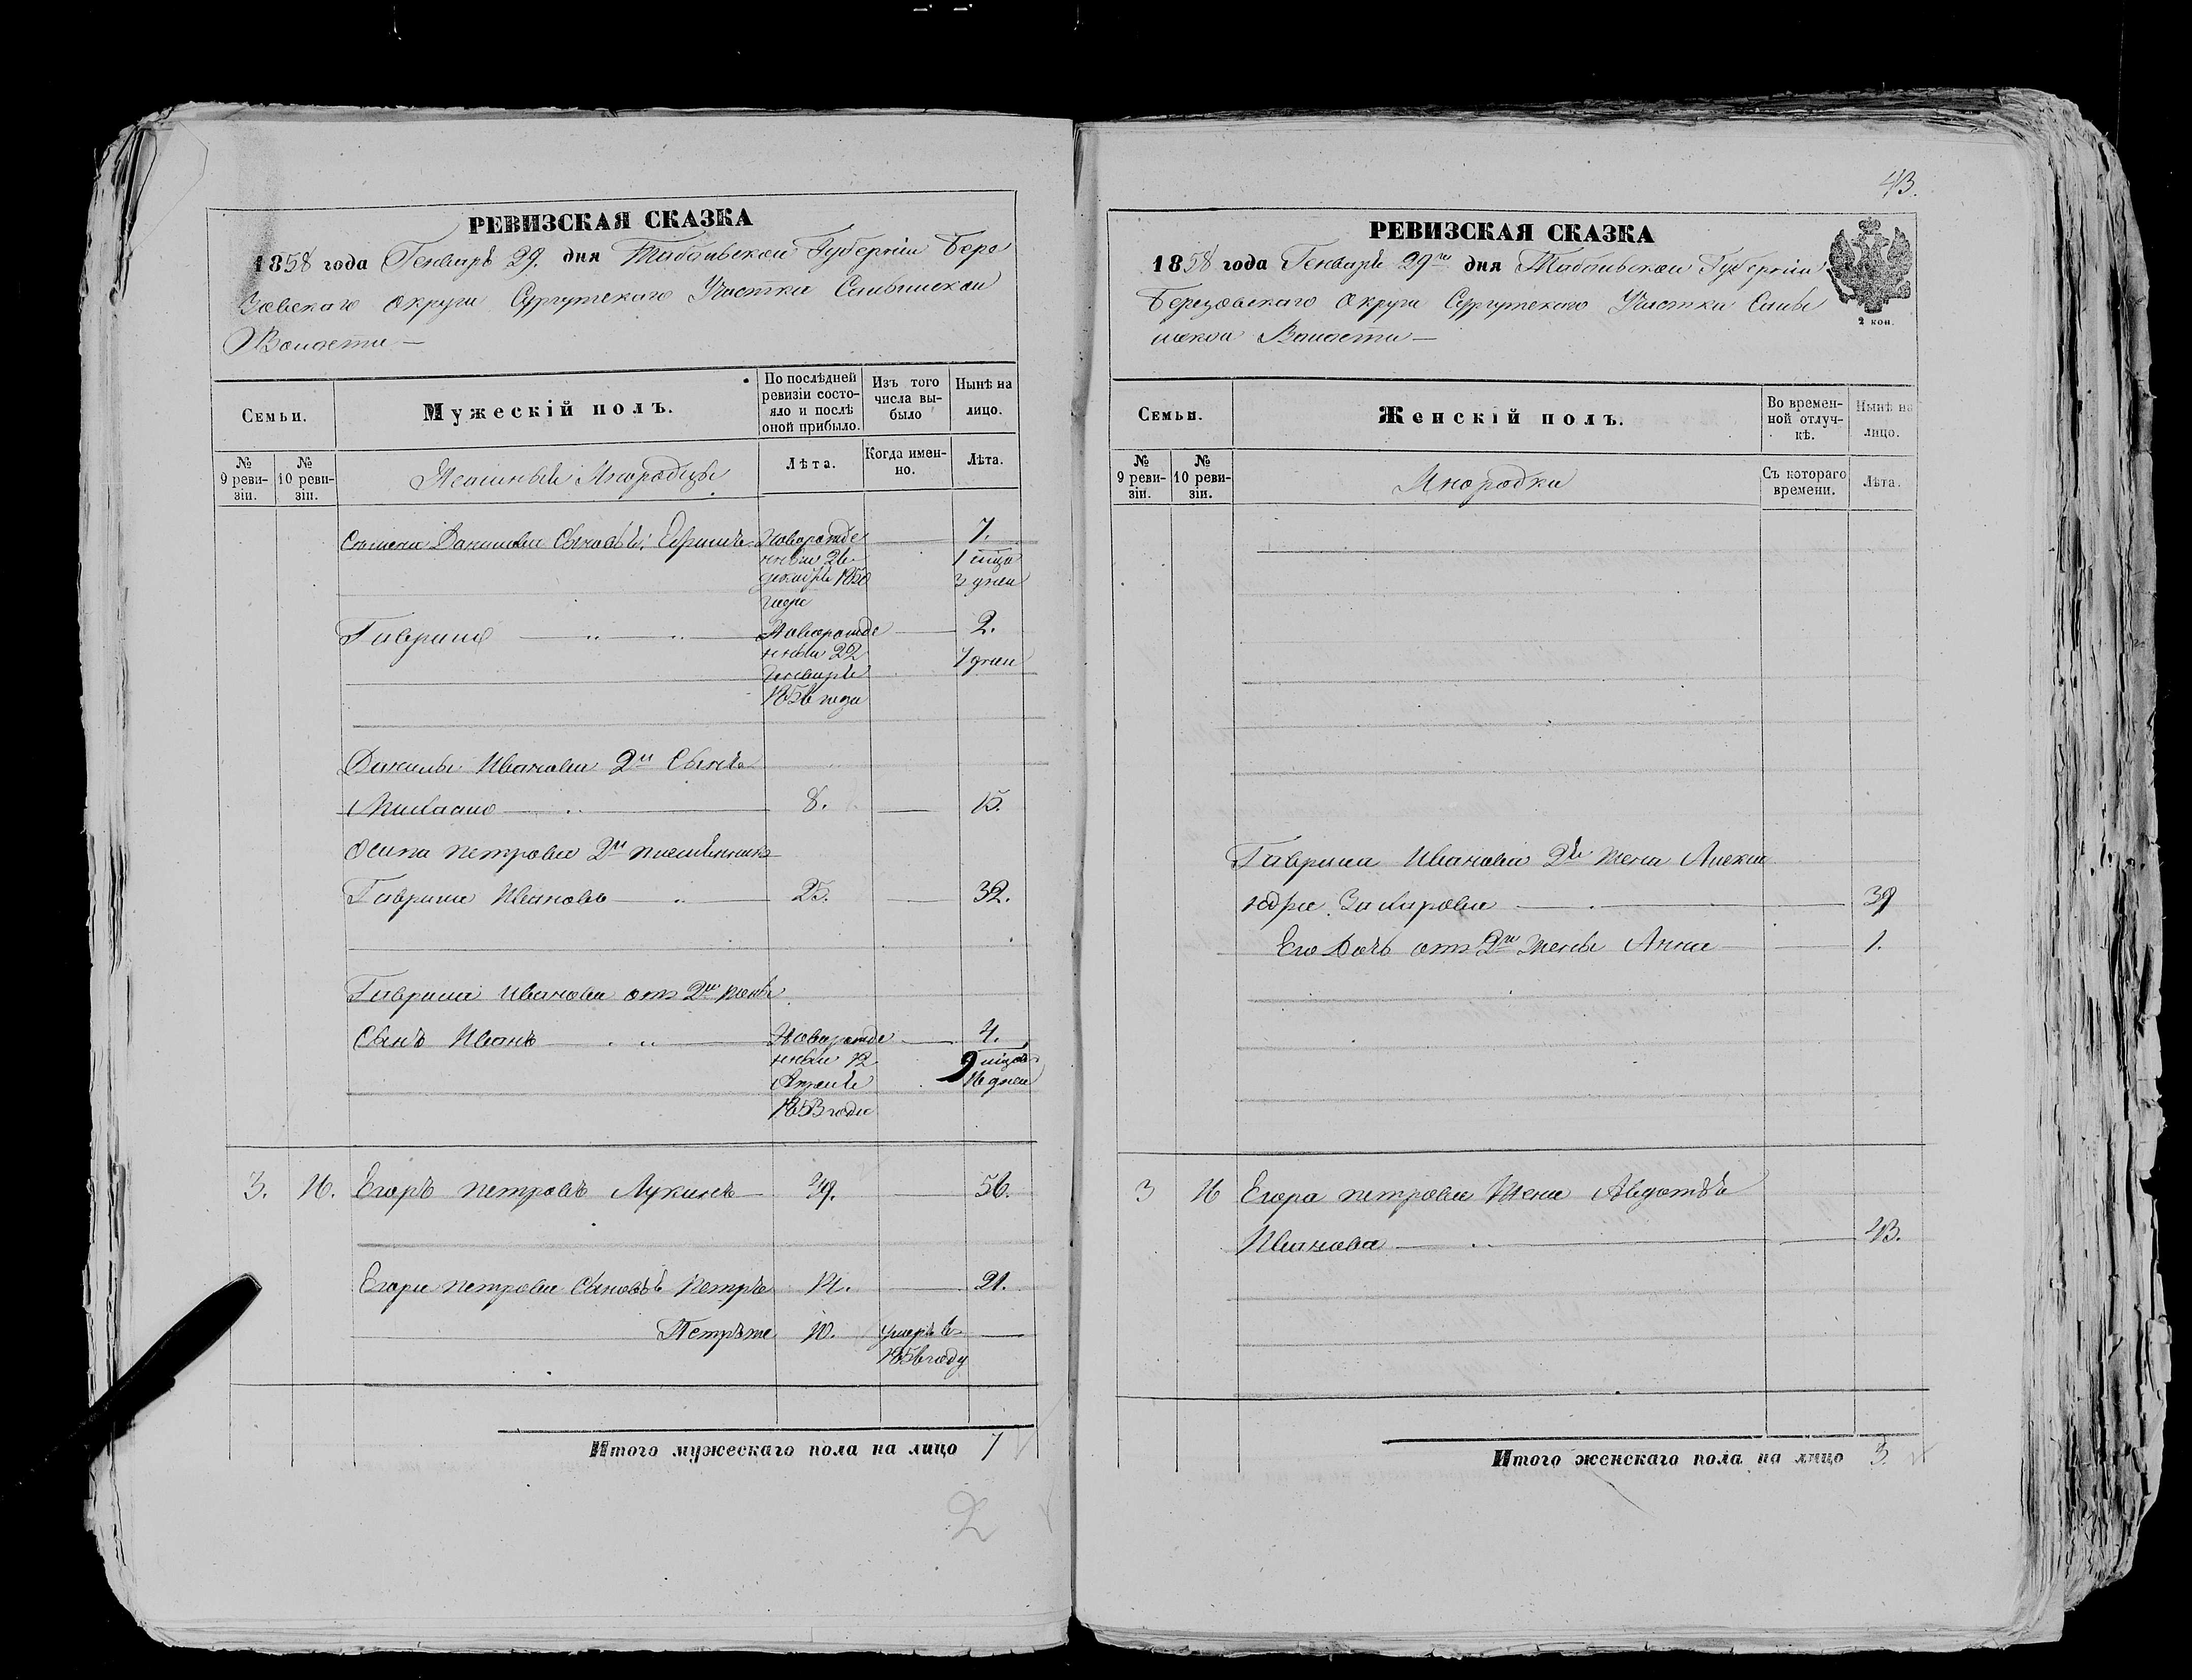 РЕВИЗСКАЯ СКАЗКА
1858 года Генваря 29. дня Тобольской Губернiи Бере
зовскаго округа Сургутскаго Участка Салымской
Волости —
Семьи.
Мужескiй полъ.
По послѣдней ревизiи состо-яло и послѣ оной прибыло.
Изъ того числа вы-было
Нынѣ на лицо.
№ 9 реви-зiи.
№ 10 реви-зiи.
Ясашные Инородцы
Лѣта.
Когда имен-но.
Лѣта.
Данилова Сыновья: Новорожде 7.
нный 26 1 мѣца
декабря 1850 3 дней
года
Гаврило Новорожде 2.
нный 22 7 дней
Генваря
1856 года
Данилы Иванова 2й Сынъ
8. 15.
Осипа Петрова 2й племянникъ
Гаврило Ивановъ 25. 32.
Гаврила Иванова отъ 2й жены
Сынъ Иванъ Новорожде 4.
нный 12 9 мѣцовъ
Апреля 16 дней
1853 года
3. 16. Егоръ Петровъ Лукинъ 49. 56.
Егора Петрова Сыновья Петръ 14. 21.
Петръ же 10. умеръ въ —
1856 году
Итого мужескаго пола на лицо 7
2
43.
РЕВИЗСКАЯ СКАЗКА
1858 года Генваря 29го дня Тобольской Губернiи
Березовскаго округа Сургутскаго Участка Салы
мской Волости —
2 коп.
Семьи.
Женскiй полъ.
Во времен-ной отлуч-кѣ.
Нынѣ на лицо.
№ 9 реви-зiи.
№ 10 реви-зiи.
Инородки
Съ котораго времени.
Лѣта.
Гаврила Иванова 2я жена Алекса
ндра Захарова 39
Его Дочь отъ 2й жены Анна 1.
3 16 Егора Петрова Жена Авдотья
Иванова 43.
Итого женскаго пола на лицо 3.